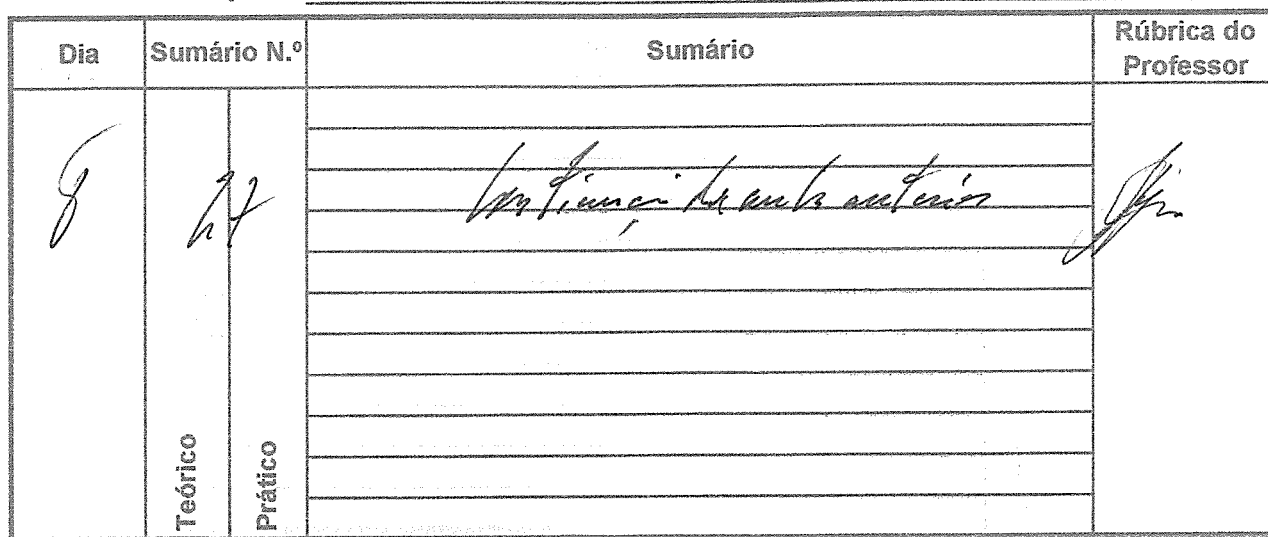 Dia Sumário N.º Sumário Rúbrica do
Professor
8 27 Continuação da aula anterior
Teórico Prático